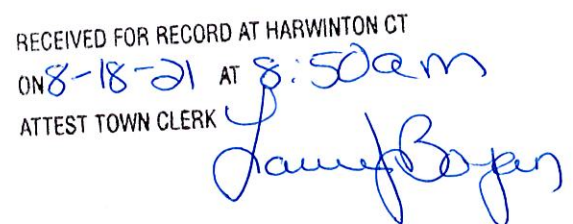 RECEIVED FOR RECORD AT HARWINTON CT
ON 8-18-21 AT 8:50am
ATTEST TOWN CLERK